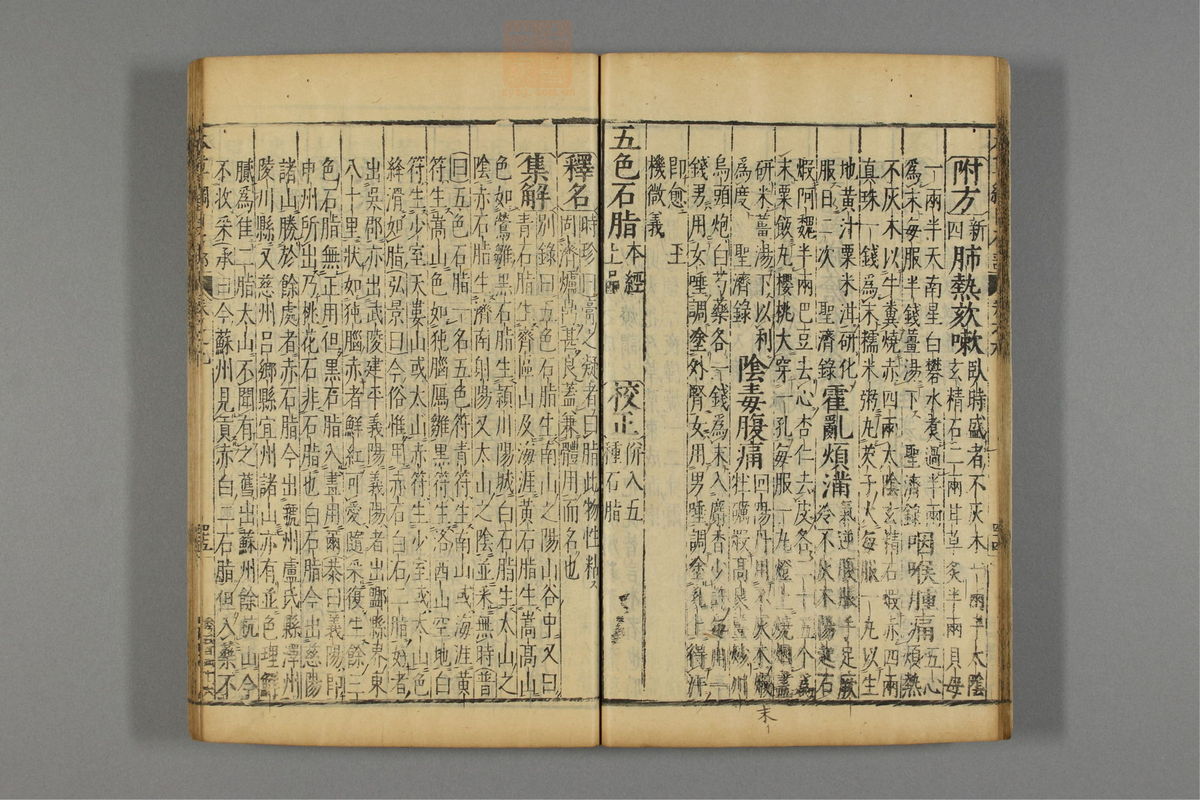 附方 新四 肺熱欬嗽 臥時盛者不灰木一兩半太陰
玄精石二兩甘草炙半兩貝母
一兩半天南星白礬水煑過半兩
爲末每服半錢薑湯下 聖濟錄 咽喉腫痛 五心煩熱
不灰木以牛糞燒赤四兩太陰玄精石煆赤四兩
真珠一錢爲末糯米粥丸芡子大每服一丸以生
地黃汁粟米泔研化
服日二次 聖濟錄 霍亂煩滿 氣逆腹脹手足厥
冷不灰木陽起石
煆阿魏半兩巴豆去心杏仁去皮各二十五个爲
末粟飯丸櫻桃大穿一孔每服一丸燈上燒烟盡
研米薑湯下以利
爲度 聖濟錄 陰毒腹痛 回陽丹用不灰木煆
烏頭炮白芍藥各一錢爲末入麝香少許每用一
錢男用女唾調塗外腎女用男唾調塗乳上得汗
即愈 玉
機微義
五色石脂 本經上品 校正 併入五種石脂
釋名 時珍曰膏之凝者曰脂此物性粘
固濟爐鼎甚良蓋兼體用而名也
集解 別錄曰五色石脂生南山之陽山谷中又曰
青石脂生齊區山及海涯黃石脂生嵩高山
色如鶯雛黑石脂生潁川陽城白石脂生太山之
陰赤石脂生濟南射陽又太山之陰並采無時普
曰五色石脂一名五色符青符生南山或海涯黃
符生嵩山色如㹠腦鴈雛黑符生洛西山空地白
符生少室天婁山或太山赤符生少室或太山色
絳滑如脂弘景曰今俗惟用赤石白石二脂好者
出吳郡亦出武陵建平義陽義陽者出鄳縣界東
八十里狀如㹠腦赤者鮮紅可愛隨采復生餘三
色石脂無正用但黑石脂入畫用爾恭曰義陽即
申州所出乃桃花石非石脂也白石脂今出慈陽
諸山勝於餘處者赤石脂今出虢州盧氏縣澤州
陵川縣又慈州呂鄉縣宜州諸山亦有並色理鮮
膩爲佳二脂太山不聞有之舊出蘇州餘杭山今
不收采承曰今蘇州見貢赤白二石脂但入藥不